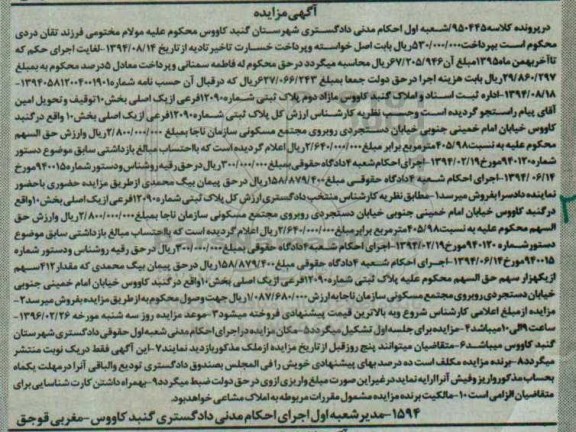 آگهی مزایده
درپرونده کلاسه۹۵۰۴۴۵/شعبه اول احکام مدنی دادگستری شهرستان گنبد کاووس محکوم علیه مولام مختومی فرزند تقان دردی
محکوم است بپرداخت۵۳۰/۰۰۰/۰۰۰ریال بابت اصل خواسته وپرداخت خسارت تاخیر تادیه از تاریخ ۱۳۹۴/۰۸/۱۴-لغایت اجرای حکم که
تاآخر بهمن ماه۱۳۹۵مبلغ آن۶۷/۲۰۵/۹۴۶ریال محاسبه میگردد در حق محکوم له فاطمه سمنانی وپرداخت معادل ۵درصد محکوم به بمبلغ
۲۹/۸۶۰/۲۹۷ریال بابت هزینه اجرا در حق دولت جمعا بمبلغ ۶۳۷/۰۶۶/۲۴۳ریال که در قبال آن حسب نامه شماره۱۳۹۴۰۵۸۱۲۰۰۴۰۰۱۹۰۱-
۱۳۹۴/۰۸/۱۸-اداره ثبت اسناد و املاک گنبد کاووس مازاد دوم پلاک ثبتی شماره۱۲۰۹۰فرعی از یک اصلی بخش۱۰توقیف و تحویل امین
آقای پیام راستجو گردیده است وحسب نظریه کارشناس ارزش کل پلاک ثبتی شماره۱۲۰۹۰فرعی از یک اصلی بخش ۱۰ واقع در گنبد
کاووس خیابان امام خمینی جنوبی خیابان دستجردی روبروی مجتمع مسکونی سازمان ناجا بمبلغ ۲/۸۰۰/۰۰۰/۰۰۰ریال وارزش حق السهم
محکوم علیه به نسبت۴۰۵/۹۸مترمربع برابر مبلغ ۲/۶۴۰/۰۰۰/۰۰۰ریال اعلام گردیده است که بااحتساب مبالغ بازداشتی سابق موضوع دستور
شماره۹۴۰۱۲۰مورخ۱۳۹۴/۰۲/۱۹-اجرای احکام شعبه ۴دادگاه حقوقی بمبلغ۳۰۰/۰۰۰/۰۰۰ریال در حق رقیه روشناس ودستور شماره ۹۴۰۰۱۵مورخ
۱۳۹۴/۰۶/۱۴-اجرای احکام شعبه ۴دادگاه حقوقی مبلغ۱۵۸/۸۷۹/۴۰۰ریال در حق پیمان بیگ محمدی از طریق مزایده حضوری باحضور
نماینده دادسرا بفروش میرسد۱-مطابق نظریه کارشناس منتخب دادگستری ارزش کل پلاک ثبتی شماره۱۲۰۹۰فرعی از یک اصلی بخش۱۰واقع
در گنبد کاووس خیابان امام خمینی جنوبی خیابان دستجردی روبروی مجتمع مسکونی سازمان ناجا بمبلغ۲/۸۰۰/۰۰۰/۰۰۰ریال وارزش حق
السهم محکوم علیه به نسبت۴۰۵/۹۸مترمربع برابر مبلغ۲/۶۴۰/۰۰۰/۰۰۰ریال اعلام گردیده است که بااحتساب مبالغ بازداشتی سابق موضوع
دستور شماره ۹۴۰۱۲۰مورخ۱۳۹۴/۰۲/۱۹-اجرای احکام شعبه ۴دادگاه حقوقی بمبلغ۳۰۰/۰۰۰/۰۰۰ریال در حق رقیه روشناس ودستور شماره
۹۴۰۰۱۵مورخ۱۳۹۴/۰۶/۱۴-اجرای احکام شعبه ۴دادگاه حقوقی مبلغ۱۵۸/۸۷۹/۴۰۰ریال در حق پیمان بیگ محمدی که مقدار۴۱۲سهم
ازیکهزار سهم حق السهم محکوم علیه پلاک ثبتی شماره۱۲۰۹۰فرعی از یک اصلی بخش۱۰واقع در گنبد کاووس خیابان امام خمینی جنوبی
خیابان دستجردی روبروی مجتمع مسکونی سازمان ناجا به ارزش ۱/۰۸۷/۶۸۰/۰۰۰ریال جهت وصول محکوم به از طریق مزایده بفروش میرسد۲-
مزایده از مبلغ اعلامی کارشناس شروع وبه بالاترین قیمت پیشنهادی فروخته میشود۳-موعد مزایده روز سه شنبه مورخه ۱۳۹۶/۰۲/۲۶-
ساعت۹الی۱۰میباشد۴-مزایده برای جلسه اول تشکیل میگردد۵-مکان مزایده در اجرای احکام مدنی شعبه اول حقوقی دادگستری شهرستان
گنبد کاووس میباشد۶-متقاضیان میتوانند پنج روز قبل از تاریخ مزایده از ملک مذکور بازدید نمایند۷-این آگهی فقط در یک نوبت منتشر
میگردد۸-برنده مزایده مکلف است ده درصد بهای پیشنهادی خویش را فی المجلس بصندوق دادگستری تودیع والباقی آنرا در مهلت یکماه
بحساب مذکور واریز وفیش آنرا ارایه نماید در غیر این صورت مبلغ واریزی ازوی در حق دولت ضبط میگردد۹-بهمراه داشتن کارت شناسایی برای
متقاضیان الزامی است۱۰-مالکیت برنده مزایده مشمول مقررات مربوطه به املاک مشاعی خواهد بود.
۱۵۹۴-مدیر شعبه اول اجرای احکام مدنی دادگستری گنبد کاووس-مغربی قوجق